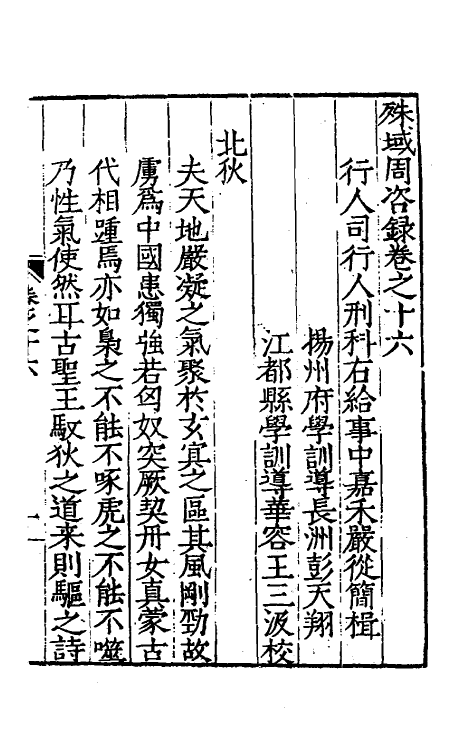 殊域周咨録卷之十六
行人司行人刑科右給事中嘉禾嚴從簡楫
揚州府學訓導長洲彭天翔
江都縣學訓導華容王三汲校
北狄
夫天地嚴凝之氣聚扵玄冥之區其風剛勁故
虜爲中國患獨強若匈奴突厥契丹女真蒙古
代相踵焉亦如梟之不能不啄虎之不能不噬
乃性氣使然耳古聖王馭狄之道来則驅之詩
卷之十六
一